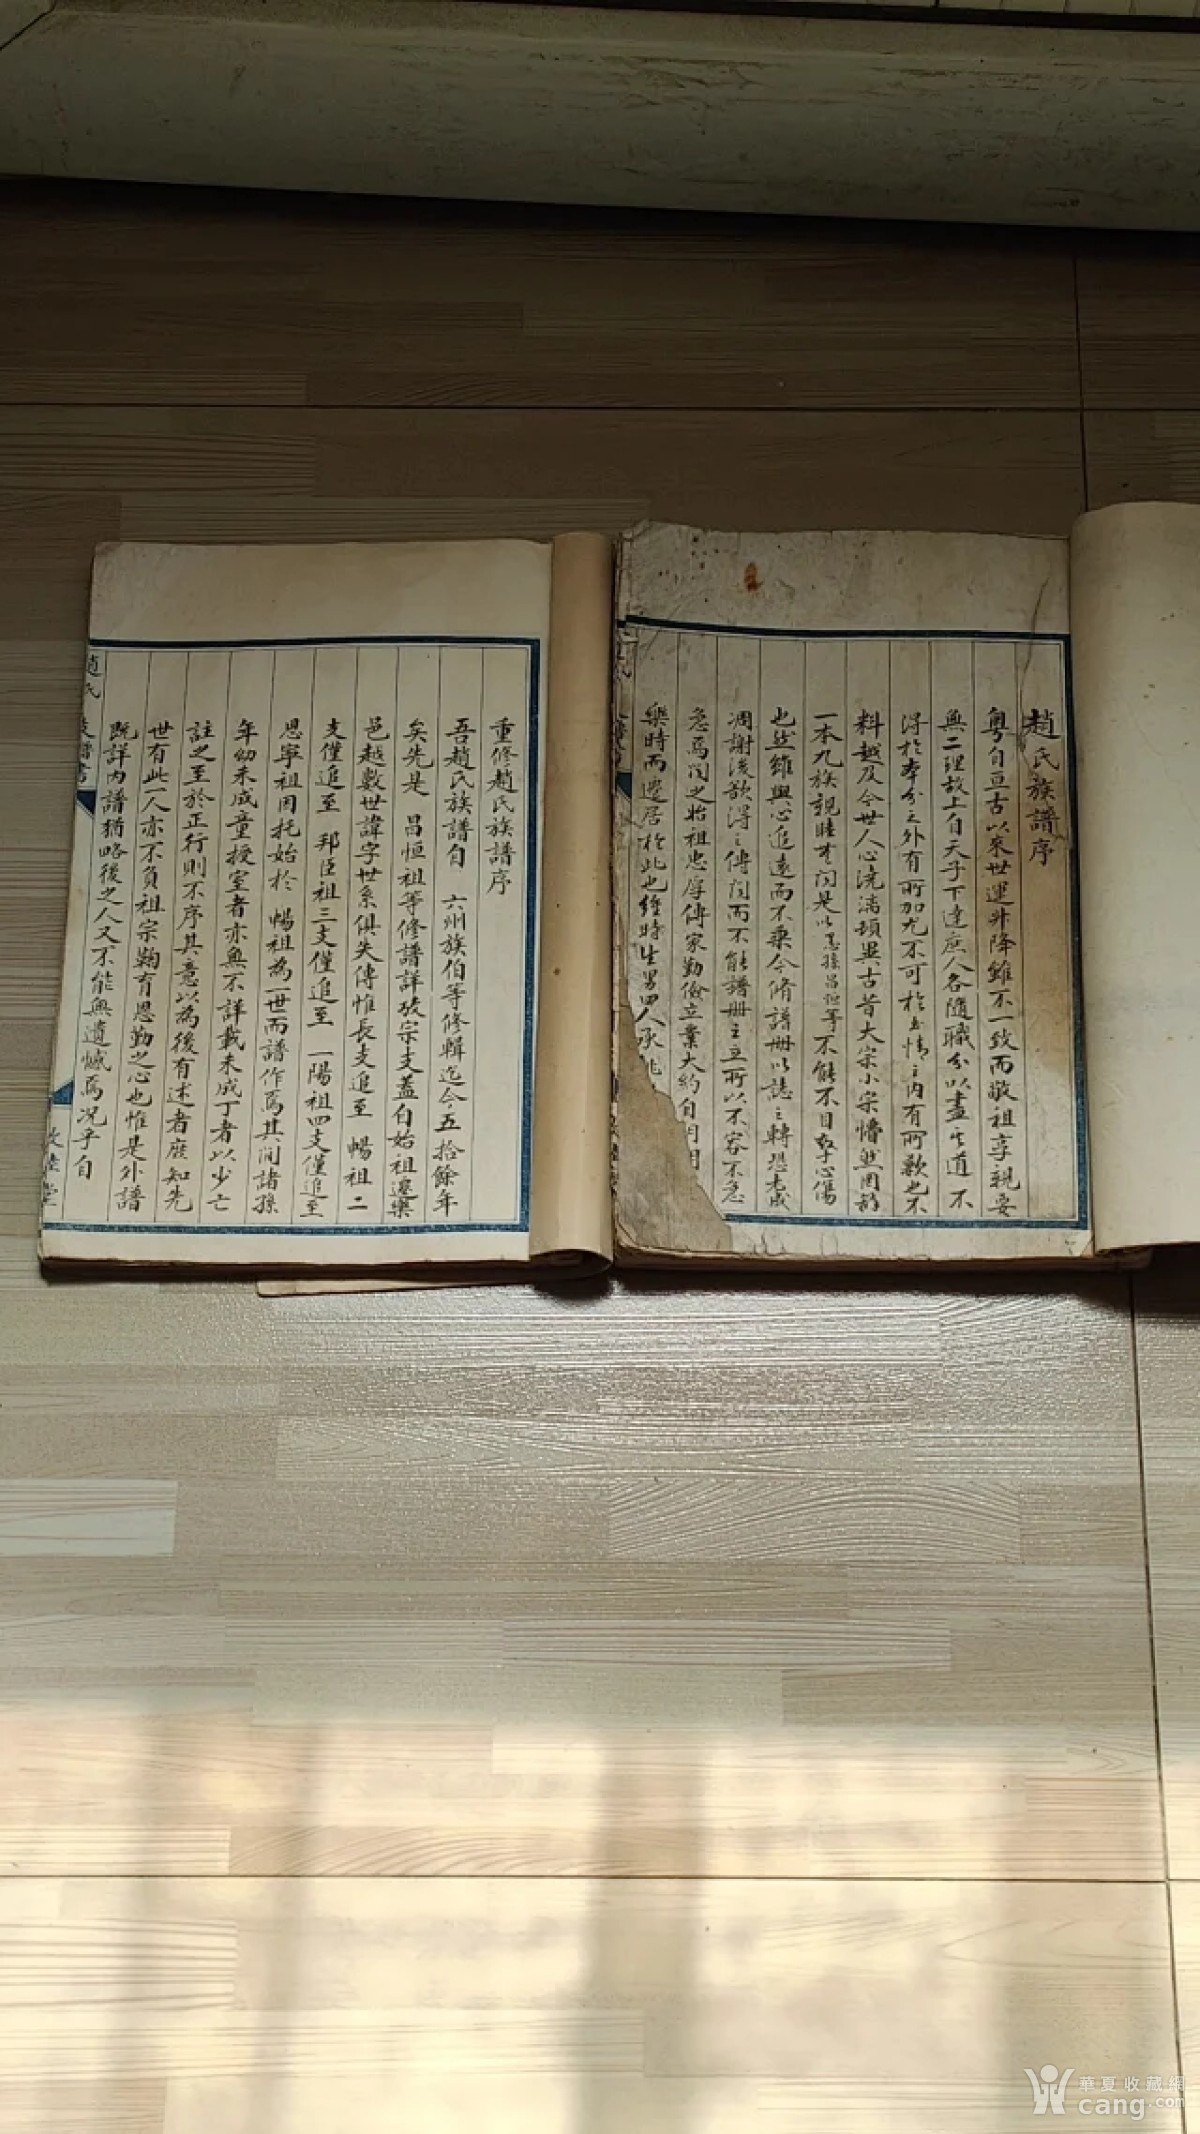 趙氏族譜序
粤自亘古以來世運升降雖不一致而敬祖享親要
無二理故上自天子下達庶人各隨職分以盡其道不
得於本分之外有所加尤不可於至情之内有所歉也不
料越及今世人心澆漓頓異古昔大宗小宗懵然罔節
一本九族親睦莫問是以愚孫昌恒等不能不目擊心傷
也然雖與心追遠而不棄今脩譜册以誌之轉恐老成
凋謝後欲得之傳聞而不能譜册之立所以不容不急
急焉問之始祖忠厚傳家勤儉立業大約自明
樂時而遷居於此也維時生男四人承
重修趙氏族譜序
吾趙氏族譜自 六州族伯等修輯迄今五拾餘年
矣先是 昌恒祖等修譜詳攷宗支蓋自始祖遷樂
邑越數世諱字世系俱失傳惟長支追至 暢祖二
支僅追至 邦臣祖三支僅追至 一陽祖四支僅追至
思寧祖因托始於 暢祖為一世而譜作焉其间諸孫
年幼未成童授室者亦無不詳載未成丁者以少亡
註之至於正行則不序其意以為後有述者庶知先
世有此一人亦不負祖宗鞠育恩勤之心也惟是外譜
既詳内譜猶略後之人又不能無遺憾焉况乎自
趙氏
華夏收藏網
cang.com